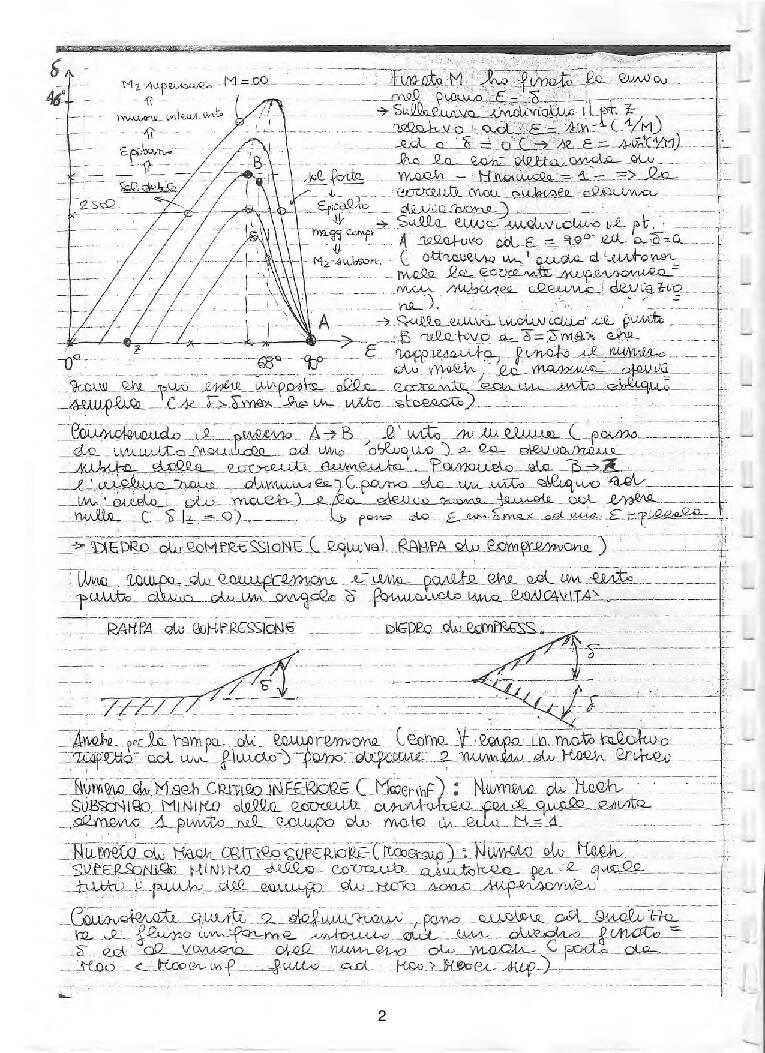 δ
46°
M2 supersonico M=∞
minore intens. urto
⇑
ε più basso
⇑
Sol debole
25001
B
sol forte
↓
ε più alto
⇓
magg compr
⇓
M2 subson.
A
z
0°
68° 90°
ε
Fissato M ho fissato la curva
nel piano ε - δ
→ Sulla curva individuo il pt. Z
relativo ad ε = sin⁻¹(1/M)
ed a δ = 0 (→ se ε = sin⁻¹(1/M)
ho la così detta onda di
mach - Mnormale = 1 - => la
corrente non subisce alcuna
deviazione)
→ Sulla curva individuo il pt.
A relativo ad ε = 90° ed a δ=0
(attraverso un'onda d'urto nor
male la corrente supersonica
non subisce alcuna deviazio
ne).
→ Sulla curva individuo il punto
B relativo a δ=δmax che
rappresenta, fissato il numero
di mach, la massima devia
zione che può essere imposta alla corrente con un urto obliquo
semplice (se δ>δmax ho un urto staccato)
Considerando il processo A→B, l'urto si inclina (passo
da un urto normale ad uno obliquo) e la deviazione
subita dalla corrente aumenta. Passando da B→Z
l'inclinazione diminuisce (passo da un urto obliquo ad
un'onda di mach) e la deviazione tende ad essere
nulla (δ|z = 0) ↳ passo da ε con δmax ad una ε + piccola
→ DIEDRO di COMPRESSIONE (equival. RAMPA di compressione)
Una rampa di compressione è una parete che ad un certo
punto devia di un angolo δ formando una CONCAVITA'
RAMPA di COMPRESSIONE DIEDRO di COMPRESS.
δ
δ
δ
Anche per la rampa di compressione (come ∀ corpo in moto relativo
rispetto ad un fluido) posso definire 2 numeri di Mach critici
Numero di Mach CRITICO INFERIORE (M∞cr inf) : Numero di Mach
SUBSONICO MINIMO della corrente asintotica per il quale esiste
almeno 1 punto nel campo di moto in cui M=1
Numero di Mach CRITICO SUPERIORE (M∞cr sup) : Numero di Mach
SUPERSONICO MINIMO della corrente asintotica per il quale
tutti i punti del campo di moto sono supersonici
Considerate queste 2 definizioni, posso andare ad analizza
re il flusso uniforme intorno ad un diedro fissato
δ ed al variare del numero di mach (parto da
M∞ < M∞cr inf fino ad M∞ > M∞cr sup.)
2